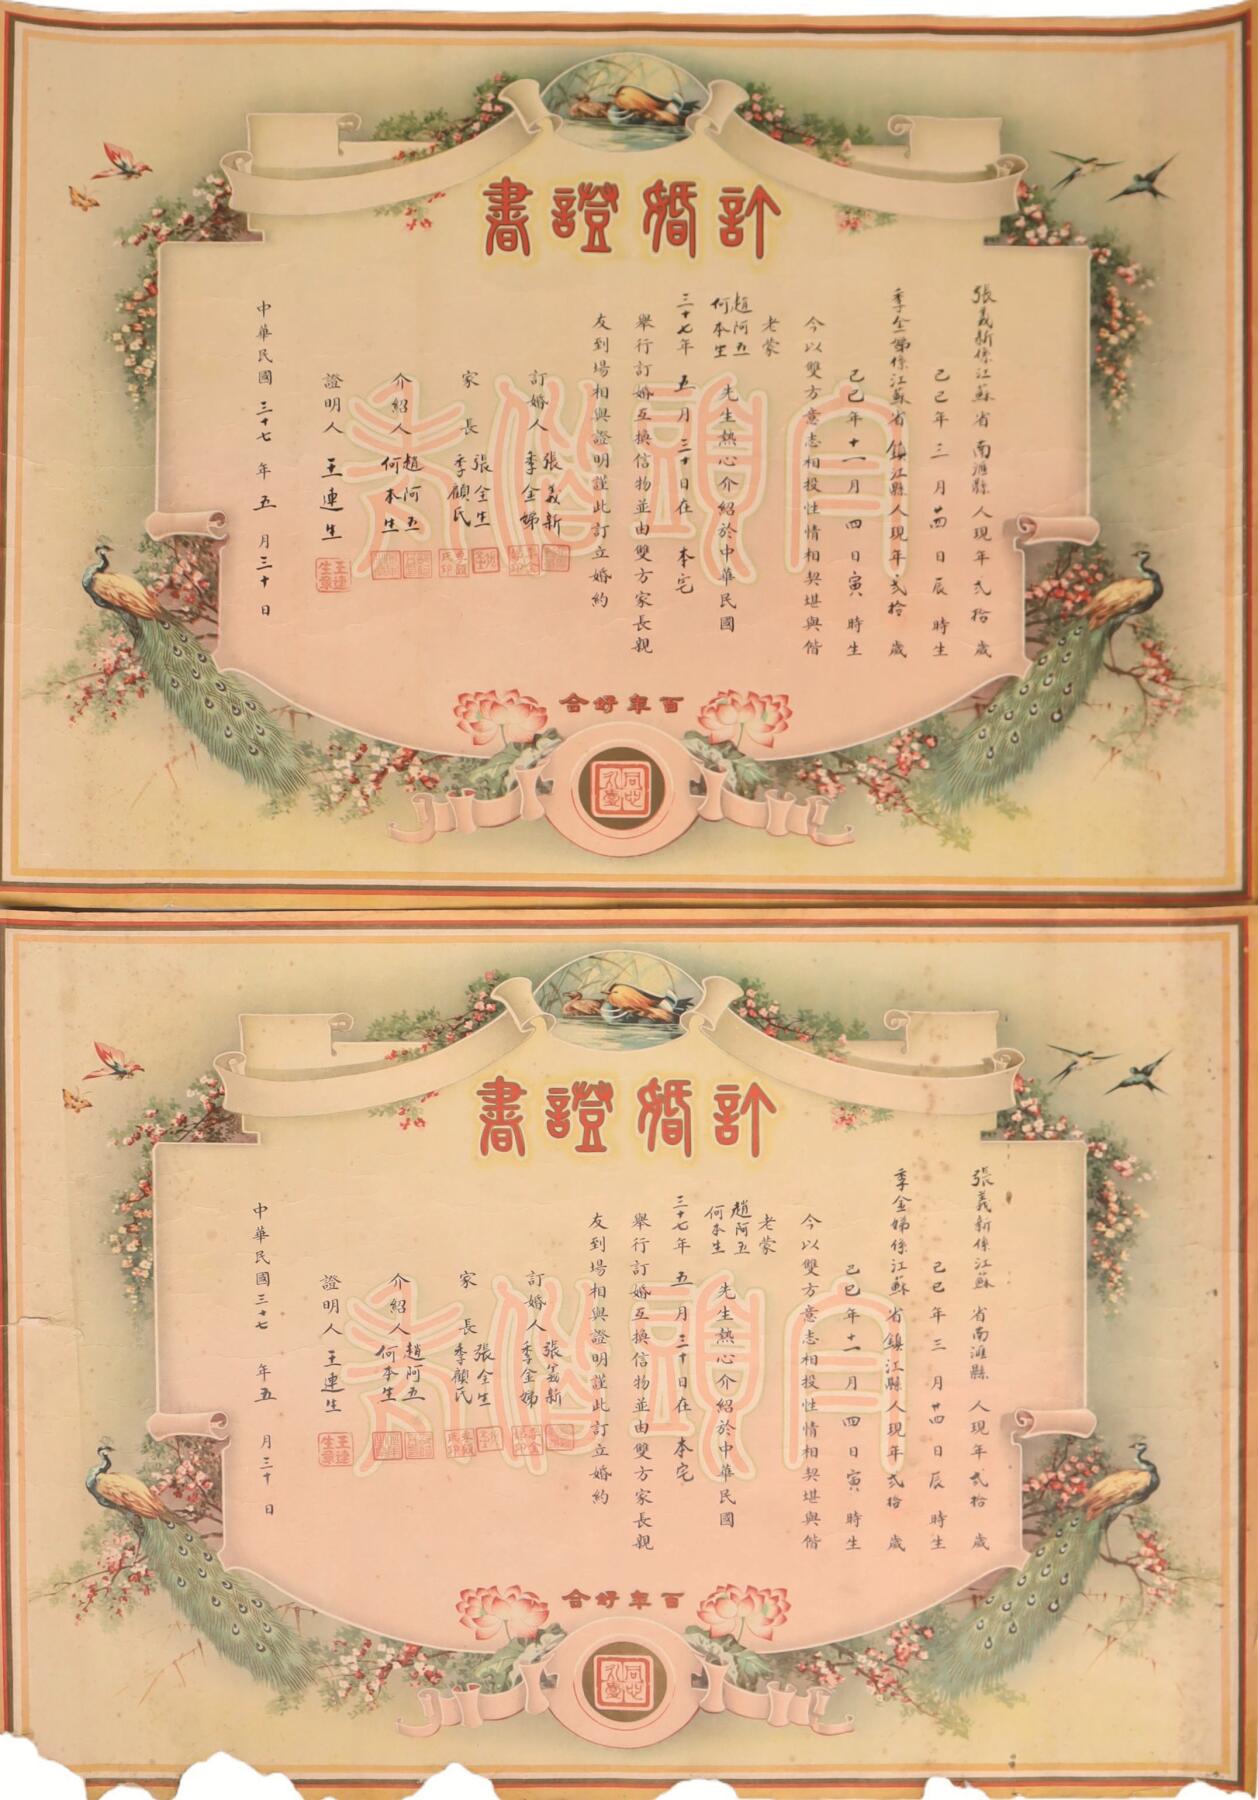 訂婚證書
張義新係江蘇省南滙縣人現年弍拾歲
己巳年三月廿四日辰時生
季金娣係江蘇省鎮江縣人現年弍拾歲
己巳年十一月四日寅時生
今以雙方意志相投性情相契堪與偕
老蒙
趙阿五
何本生
先生熱心介紹於中華民國
三十七年五月三十日在本宅
舉行訂婚互換信物並由雙方家長親
友到場相與證明謹此訂立婚約
訂婚人
張義新
季金娣
家長
張全生
季顧氏
介紹人
趙阿五
何本生
證明人王連生
王連生章
中華民國三十七年五月三十日
白頭偕老
百年好合
同心永臺
訂婚證書
張義新係江蘇省南滙縣人現年弍拾歲
己巳年三月廿四日辰時生
季金娣係江蘇省鎮江縣人現年弍拾歲
己巳年十一月四日寅時生
今以雙方意志相投性情相契堪與偕
老蒙
趙阿五
何本生
先生熱心介紹於中華民國
三十七年五月三十日在本宅
舉行訂婚互換信物並由雙方家長親
友到場相與證明謹此訂立婚約
訂婚人
張義新
季金娣
家長
張全生
季顧氏
介紹人
趙阿五
何本生
證明人王連生
王連生章
中華民國三十七年五月三十日
白頭偕老
百年好合
同心永臺